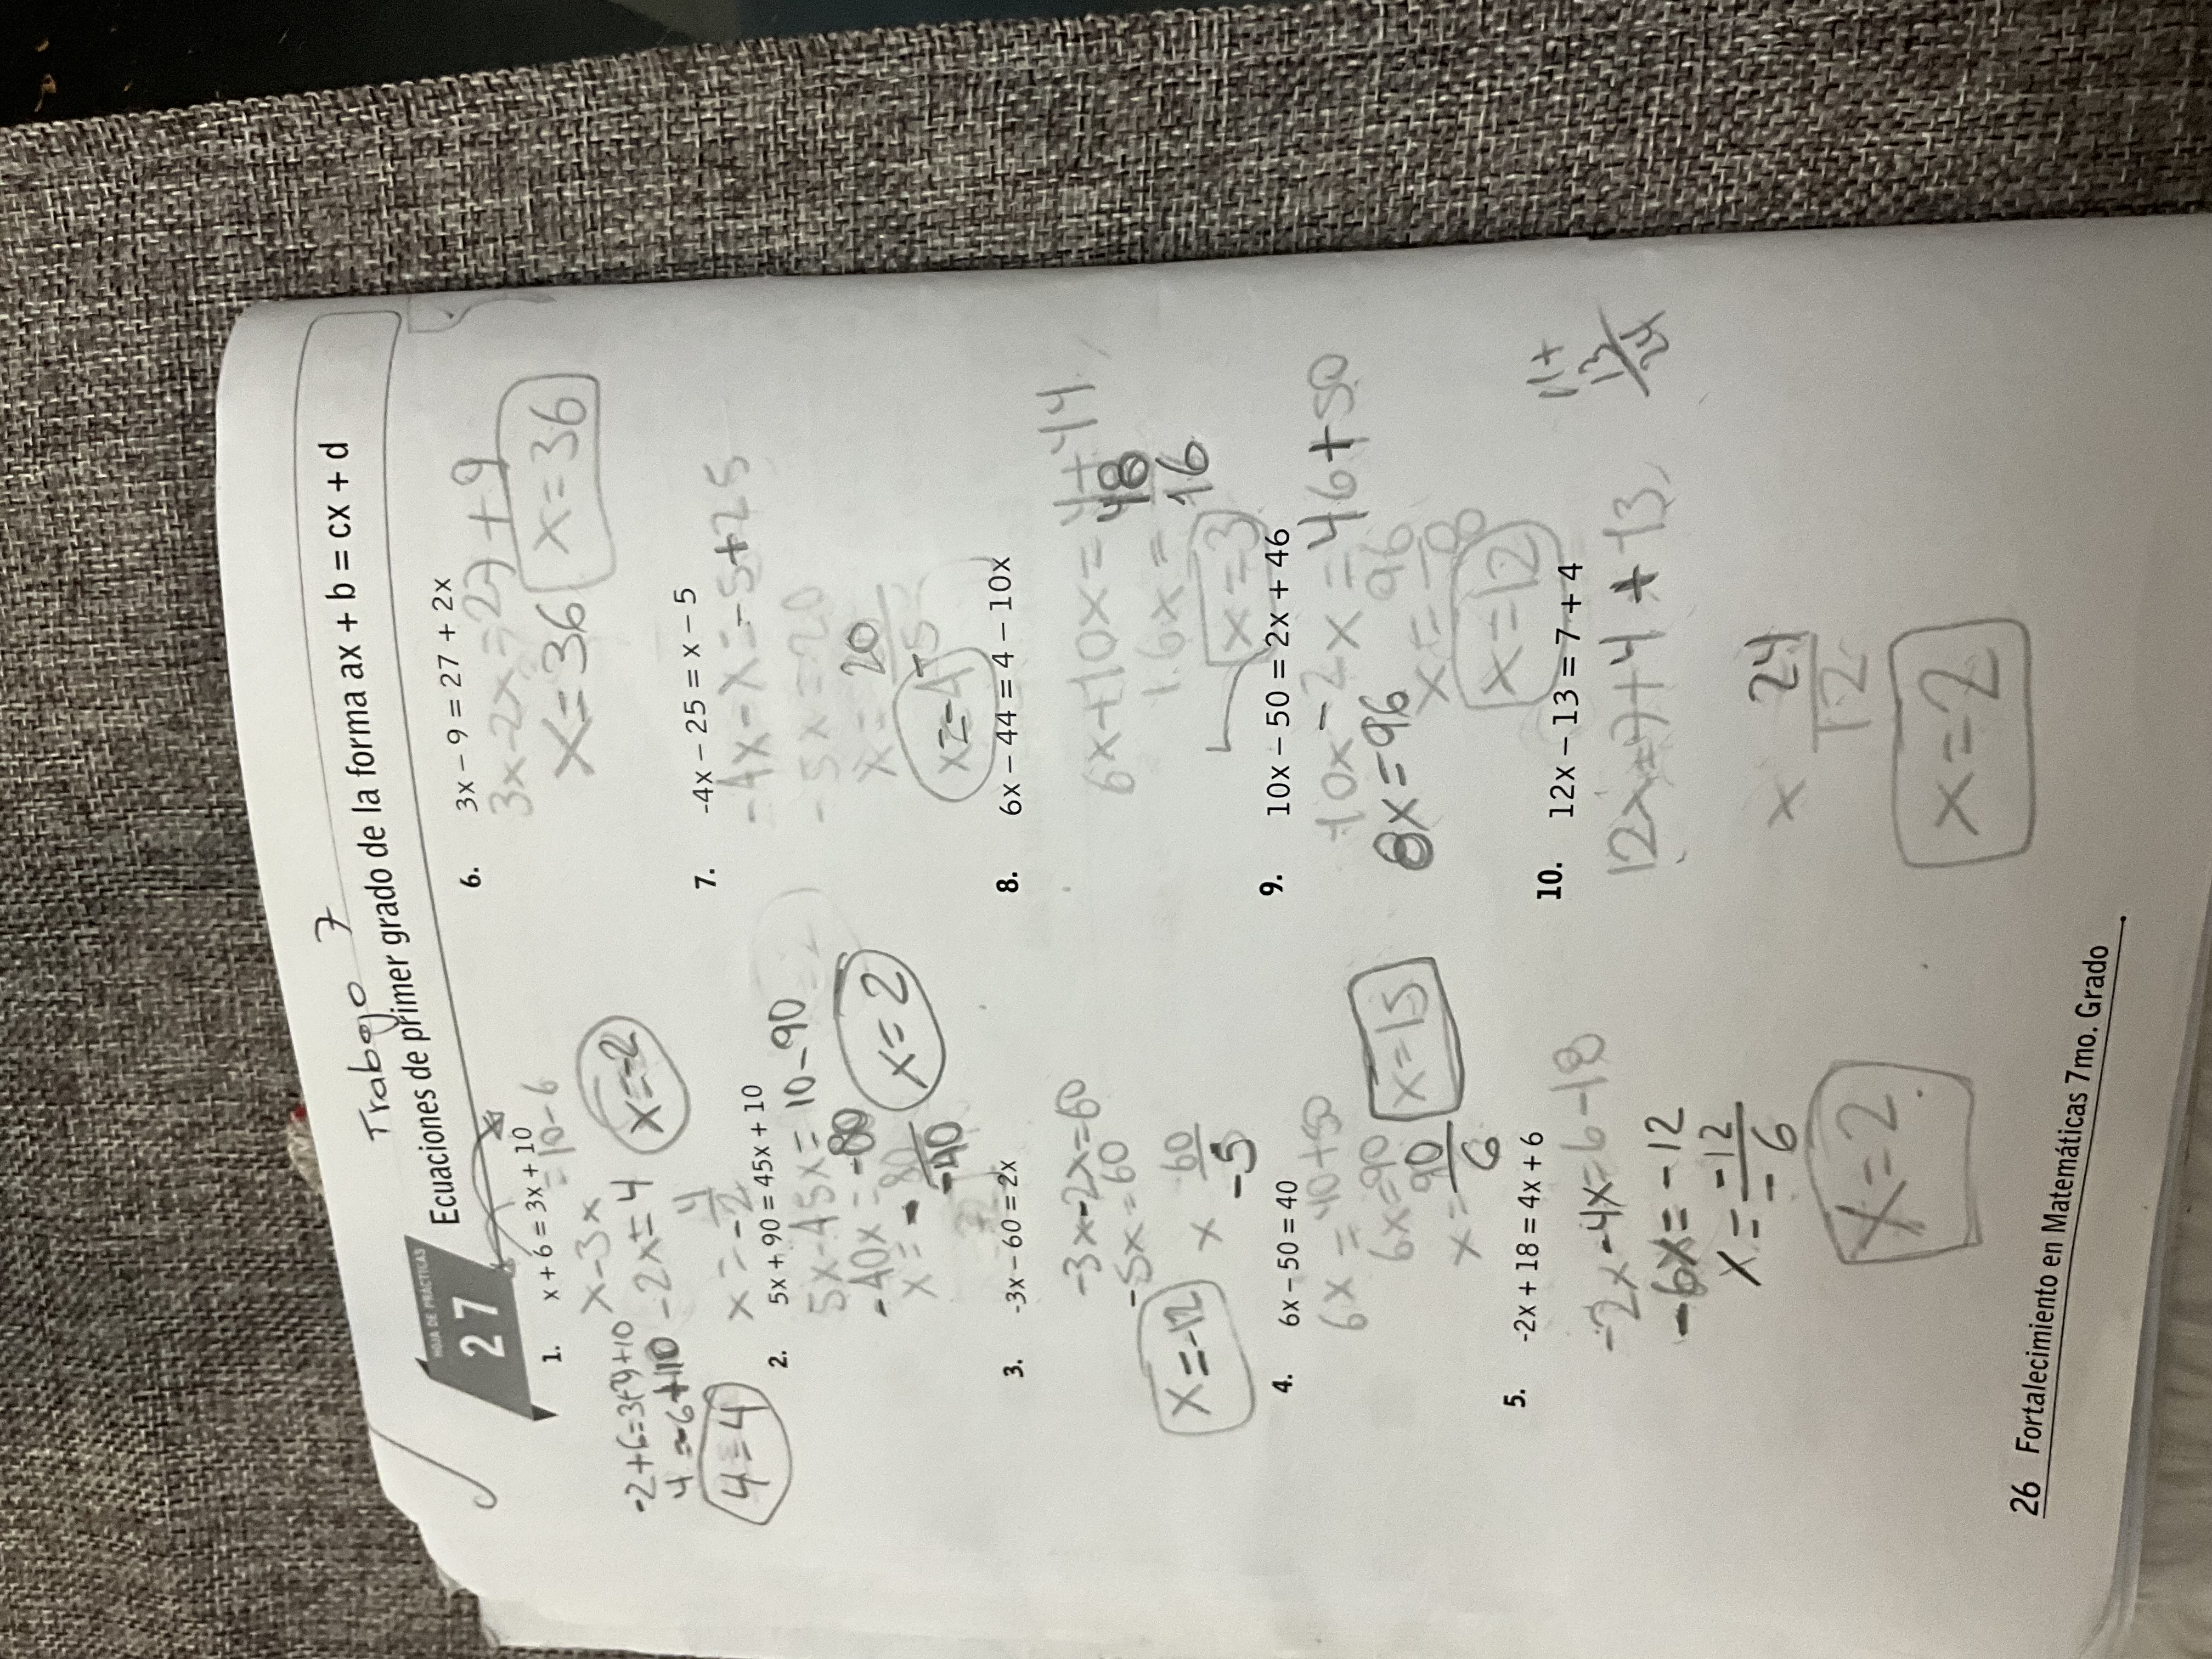 Trabajo 7
HOJA DE PRÁCTICAS
27
Ecuaciones de primer grado de la forma ax + b = cx + d
1. x + 6 = 3x + 10
x - 3x = 10 - 6
-2x = 4
x = 4
-2
x = -2
4 = -6 + 10
4 = 4
2. 5x + 90 = 45x + 10
5x - 45x = 10 - 90
-40x = -80
x = - 80
-40
x = 2
3. -3x - 60 = 2x
-3x - 2x = 60
-5x = 60
x 60
-5
x = -12
4. 6x - 50 = 40
6x = 40 + 50
6x = 90
x = 90
6
x = 15
5. -2x + 18 = 4x + 6
-2x - 4x = 6 - 18
-6x = -12
x = -12
-6
x = 2
6. 3x - 9 = 27 + 2x
3x - 2x = 27 + 9
x = 36
x = 36
7. -4x - 25 = x - 5
-4x - x = -5 + 25
-5x = 20
x = 20
-5
x = -4
8. 6x - 44 = 4 - 10x
6x + 10x = 4 + 44
16x = 48
16
x = 3
9. 10x - 50 = 2x + 46
10x - 2x = 46 + 50
8x = 96
x = 96
8
x = 12
10. 12x - 13 = 7 + 4
12x = 7 + 4 + 13
11 +
13
24
x 24
12
x = 2
26 Fortalecimiento en Matemáticas 7mo. Grado